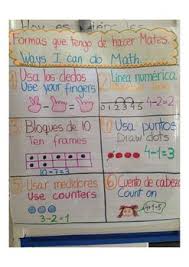 Hoy es
Formas que tengo de hacer Mates.
Ways I can do Math.
1 Usa los dedos
Use your fingers
2 Línea numérica
012345
4-2=2
3 Bloques de 10
Ten frames
4 Usa puntos
Draw dots
4-1=3
5 Usar medidores
Use counters
3-2=1
6 Cuento de cabeza
Count on